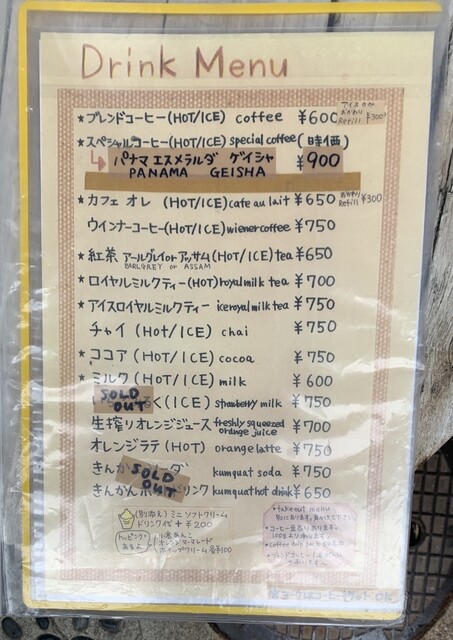 Drink Menu
★ブレンドコーヒー(HOT/ICE) coffee ¥600 アイスのみ おかわり Refill ¥300
★スペシャルコーヒー(HOT/ICE) special coffee (時価)
↳ パナマ エスメラルダ ゲイシャ ¥900
PANAMA GEISHA
★カフェオレ (HOT/ICE) cafe au lait ¥650 おかわり Refill ¥300
ウインナーコーヒー(HOT/ICE) wiener coffee ¥750
★紅茶 アールグレイorアッサム(HOT/ICE) tea ¥650
EARLGREY or ASSAM
★ロイヤルミルクティー(HOT) royal milk tea ¥700
★アイスロイヤルミルクティー ice royal milk tea ¥750
チャイ (Hot/ICE) chai ¥750
★ココア (HOT/ICE) cocoa ¥750
★ミルク (HOT/ICE) milk ¥600
SOLD OUT く(ICE) strawberry milk ¥750
生搾りオレンジジュース freshly squeezed orange juice ¥700
オレンジラテ (HOT) orange latte ¥750
きんか SOLD OUT ダ kumquat soda ¥750
きんかんホ リンク kumquat hot drink ¥650
(別添え) ミニソフトクリーム
ドリンク代+¥200
トッピングあります
オレンジマーマレード
ホイップクリーム 各¥100
★take out menu